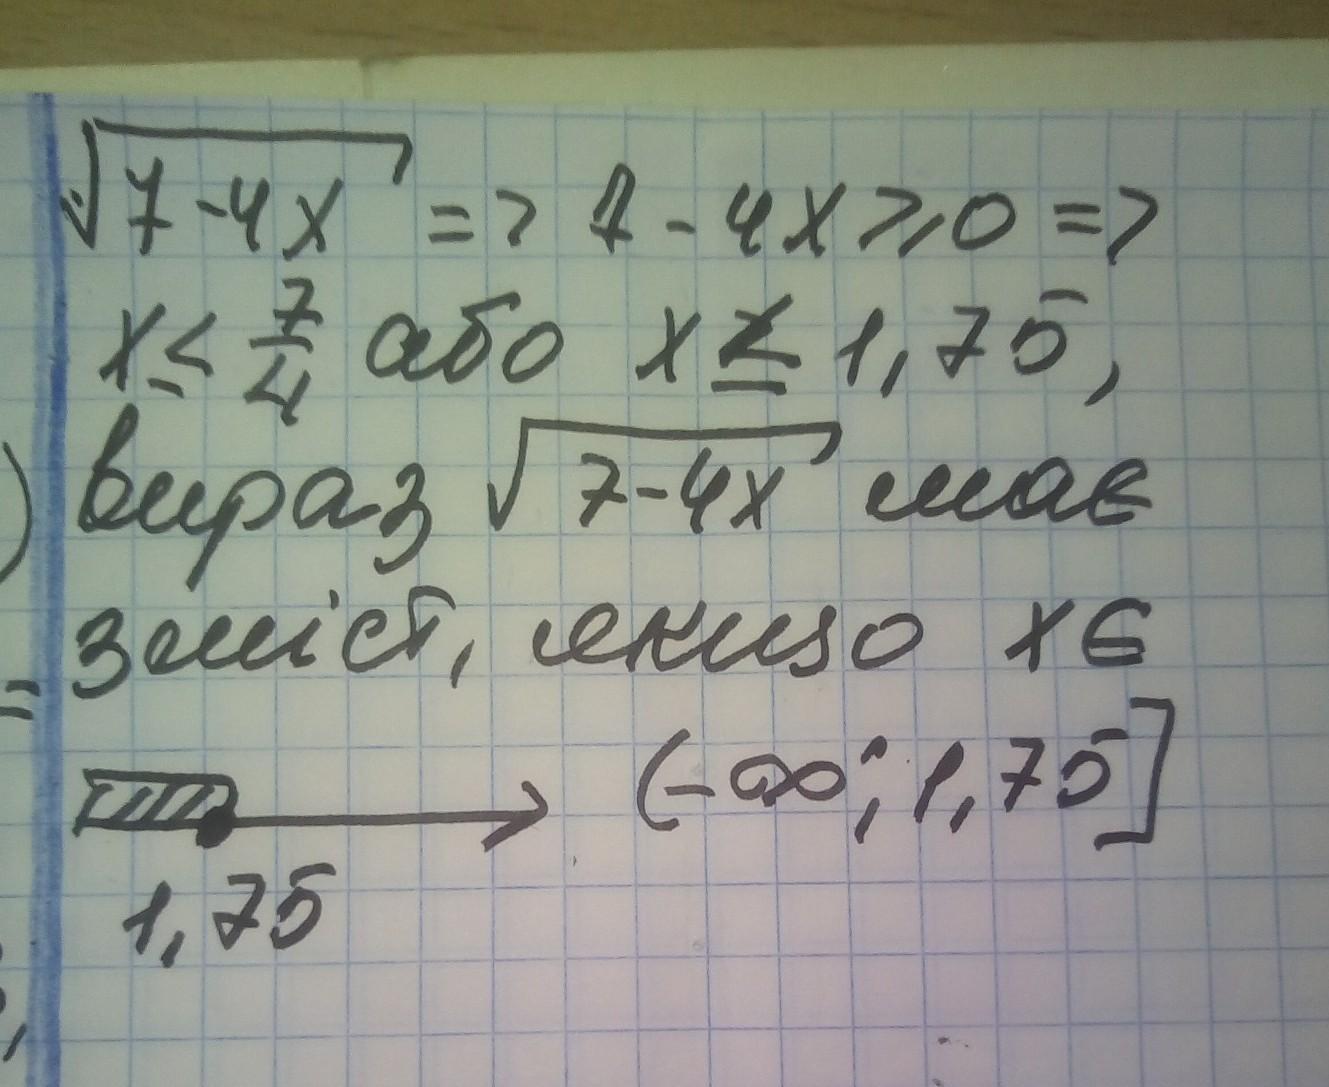 √7-4x => 7-4x⩾0 =>
x≤7/4 або x≤1,75,
вираз √7-4x має
зміст, якщо x∈
(-∞; 1,75]
1,75